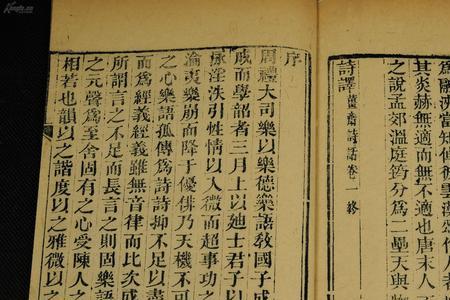 其炎赫無適而無不適也唐末人
之說孟郊溫庭筠分爲二壘天與
詩譯 薑齋詩話卷一 終
序
周禮大司樂以樂德樂語教國子成
而學韶者三月上以廸士君子以
泳淫泆引性情以入微而超事功
淪夷樂崩而降于優俳乃天機不可
之心樂語孤傳爲詩詩抑不足以盡
而爲經義經義雖無音律而比次成
所謂言之不足而長言之則固樂語
之元聲爲至舍固有之心受陳人之
相若也韻以之諧度以之雅微以之